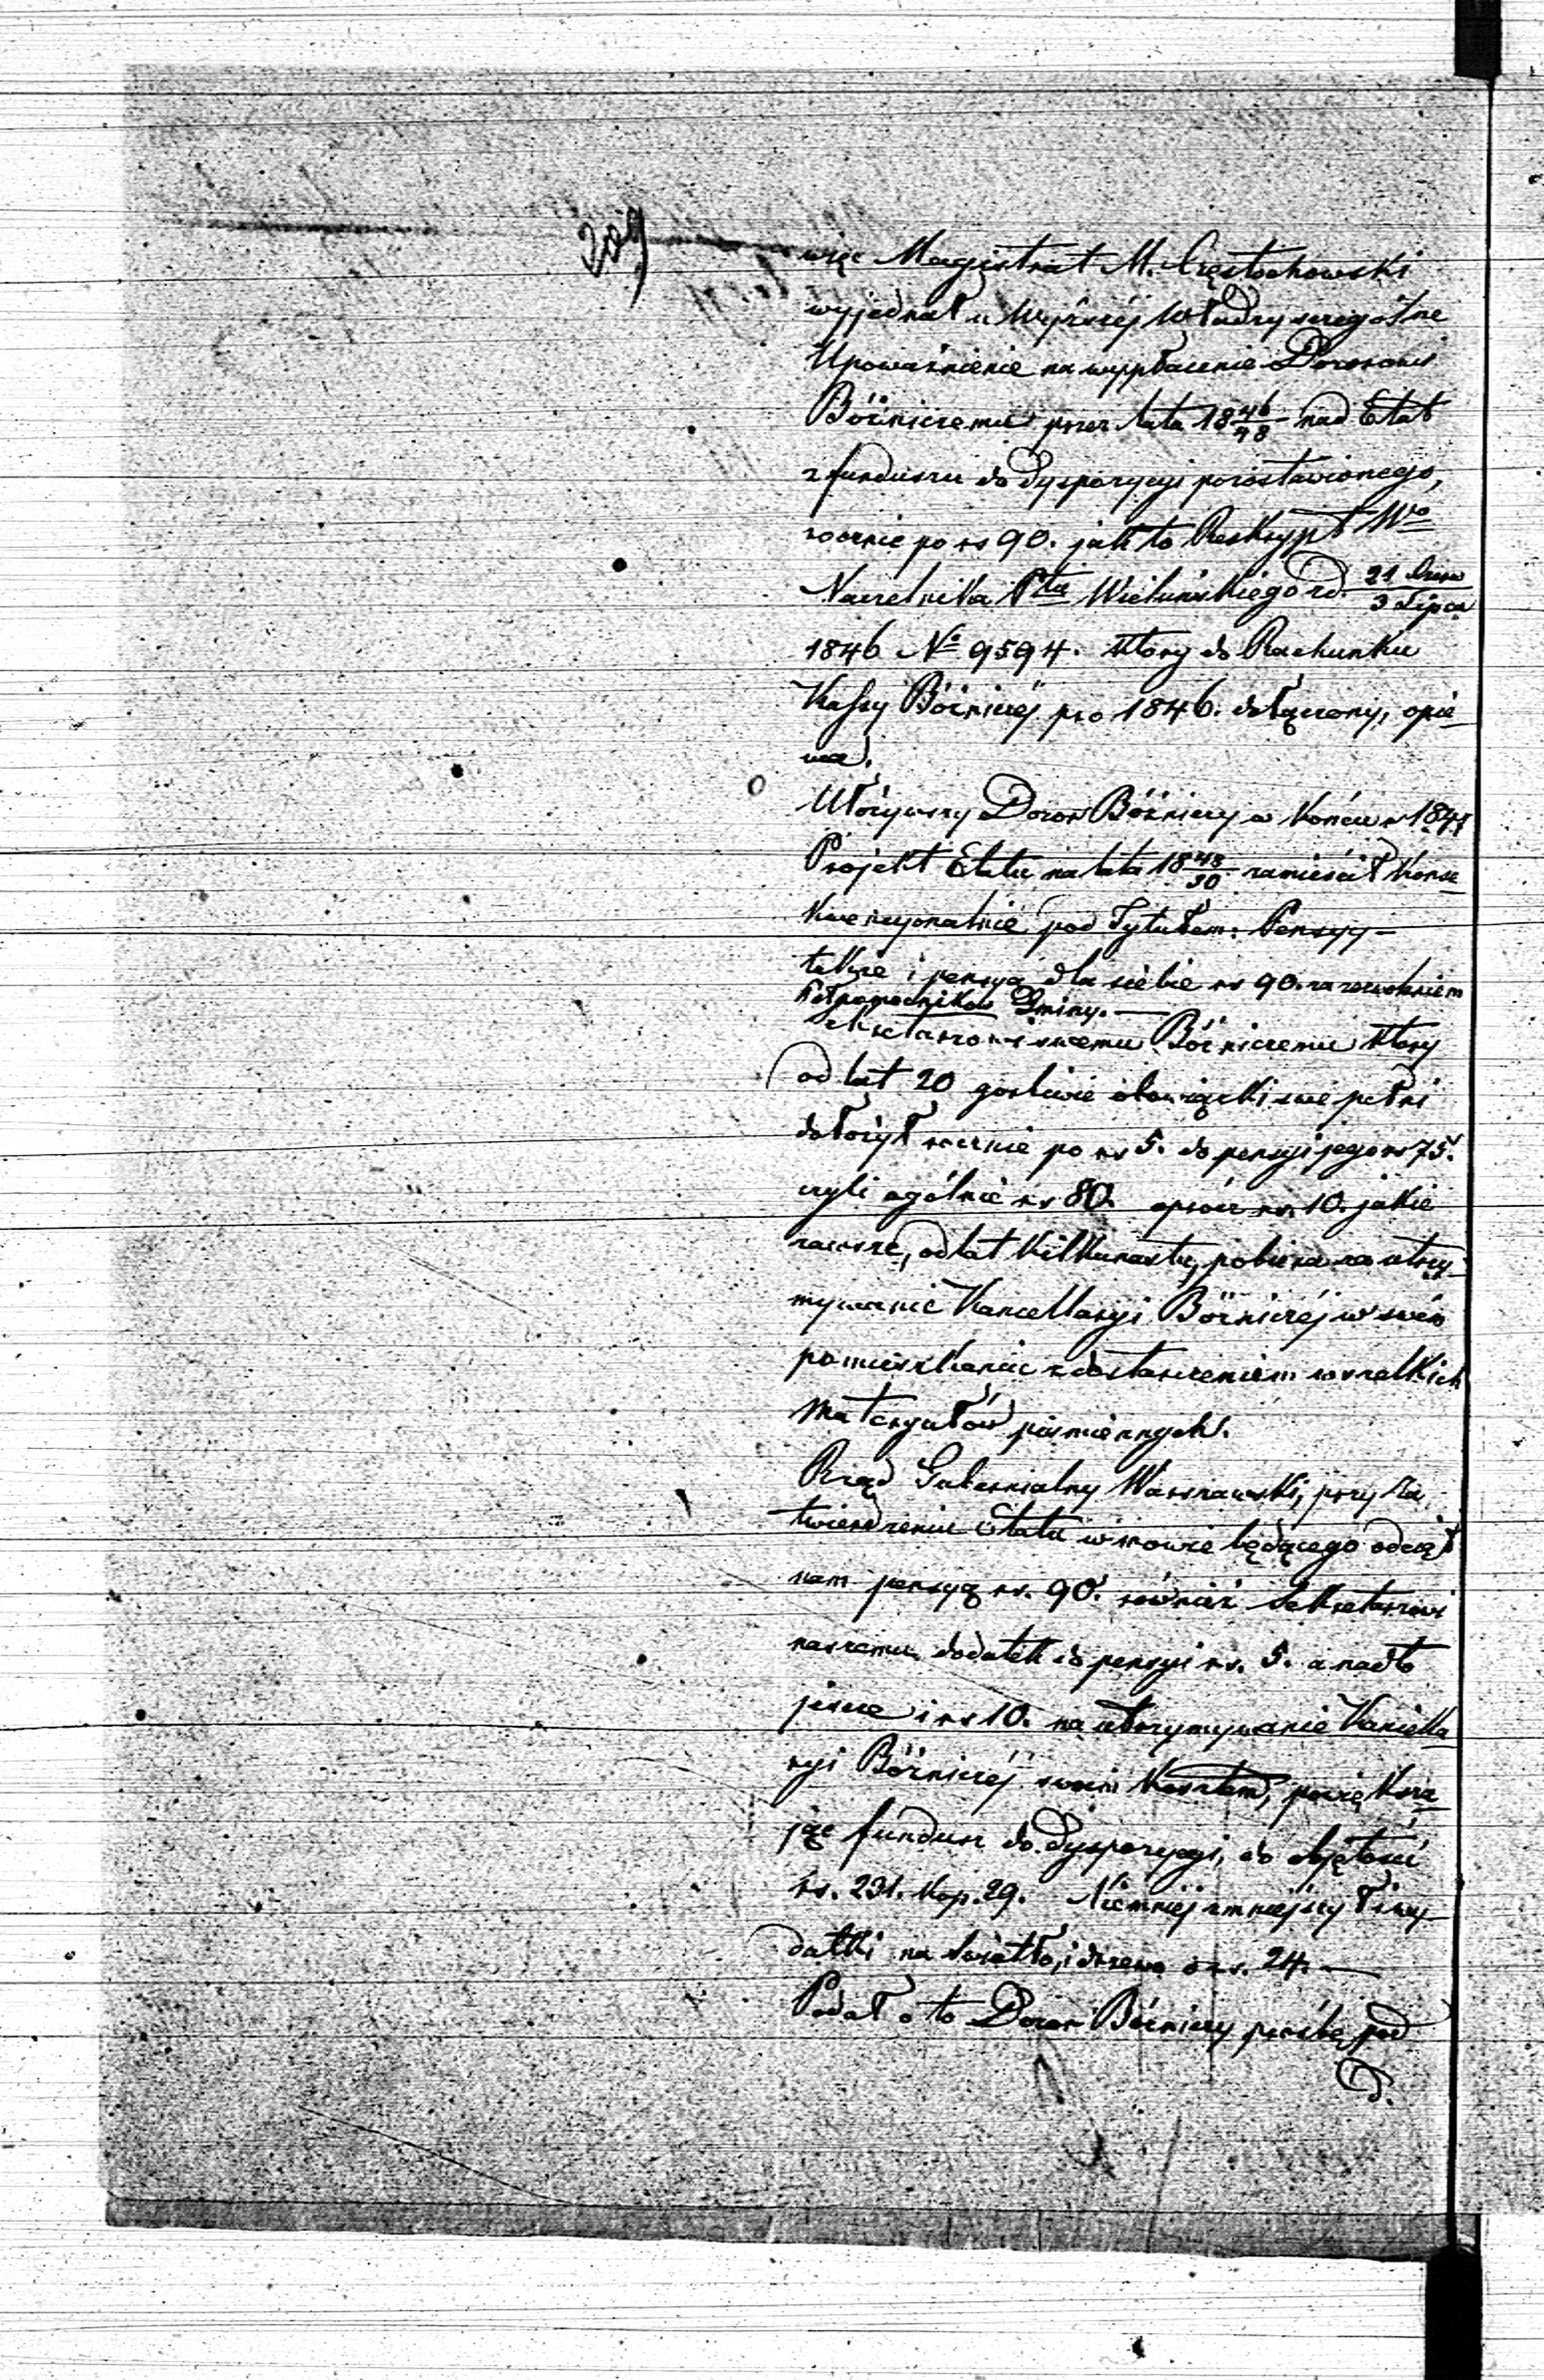 209
więc Magistrat M. Częstochowski
wyjednał u Wyższéj Władzy szczególne
Upoważnienie na wypłacenie Dozorowi
Bóźniczemu przez lata 18 46/48 nad Etat
z funduszu do dyspozycyi pozostawionego,
rocznie po rs 90. jak to Reskrypt Wo
Naczelnika Ptu Wieluńskiego z d. 21 Czerw/3 Lipca
1846 No 9594. który do Rachunku
Kassy Bóżniczéj pro 1846. dołączony, opie-
wa.
Ułożywszy Dozór Bóżniczy w końcu r 1847
Projekt Etatu na lata 18 48/50 zamieścił konse-
kwencyonalnie pod Tytułem: Pensyy-
także i pensyą dla siebie rs 90. za zezwoleniem
Pełnomocników Gminy. —
Sekretarzowi swemu Bóżniczemu który
od lat 20 gorliwie obowiązki swe pełni
dołożył rocznie po rs 5. do pensyi jego rs 75.
czyli ogólnie rs 80. oprócz rs. 10. jakie
zawsze, od lat kilkunastu, pobiera za utrzy-
mywanie Kancellaryi Bóżniczéj w swém
pomieszkaniu z dostarczeniem wszelkich
Materyałów piśmiennych.
Rząd Gubernialny Warszawski, przy Za-
twierdzeniu Etatu w mowie będącego odciął
nam pensyą rs. 90. również Sekretarzowi
naszemu dodatek do pensyi rs. 5. a nadto
jeszcze i rs 10. na utrzymywanie Kancella-
ryi Bóżniczéj swoim kosztem, powiększa-
jąc fundusz do dyspozycyi, do objętości
rs. 231. kop. 29. Niemniéj zmniejszył i wy-
datki na światło, i drzewo o rs. 24. —
Podał o to Dozór Bóżniczy prośbę pod
D.